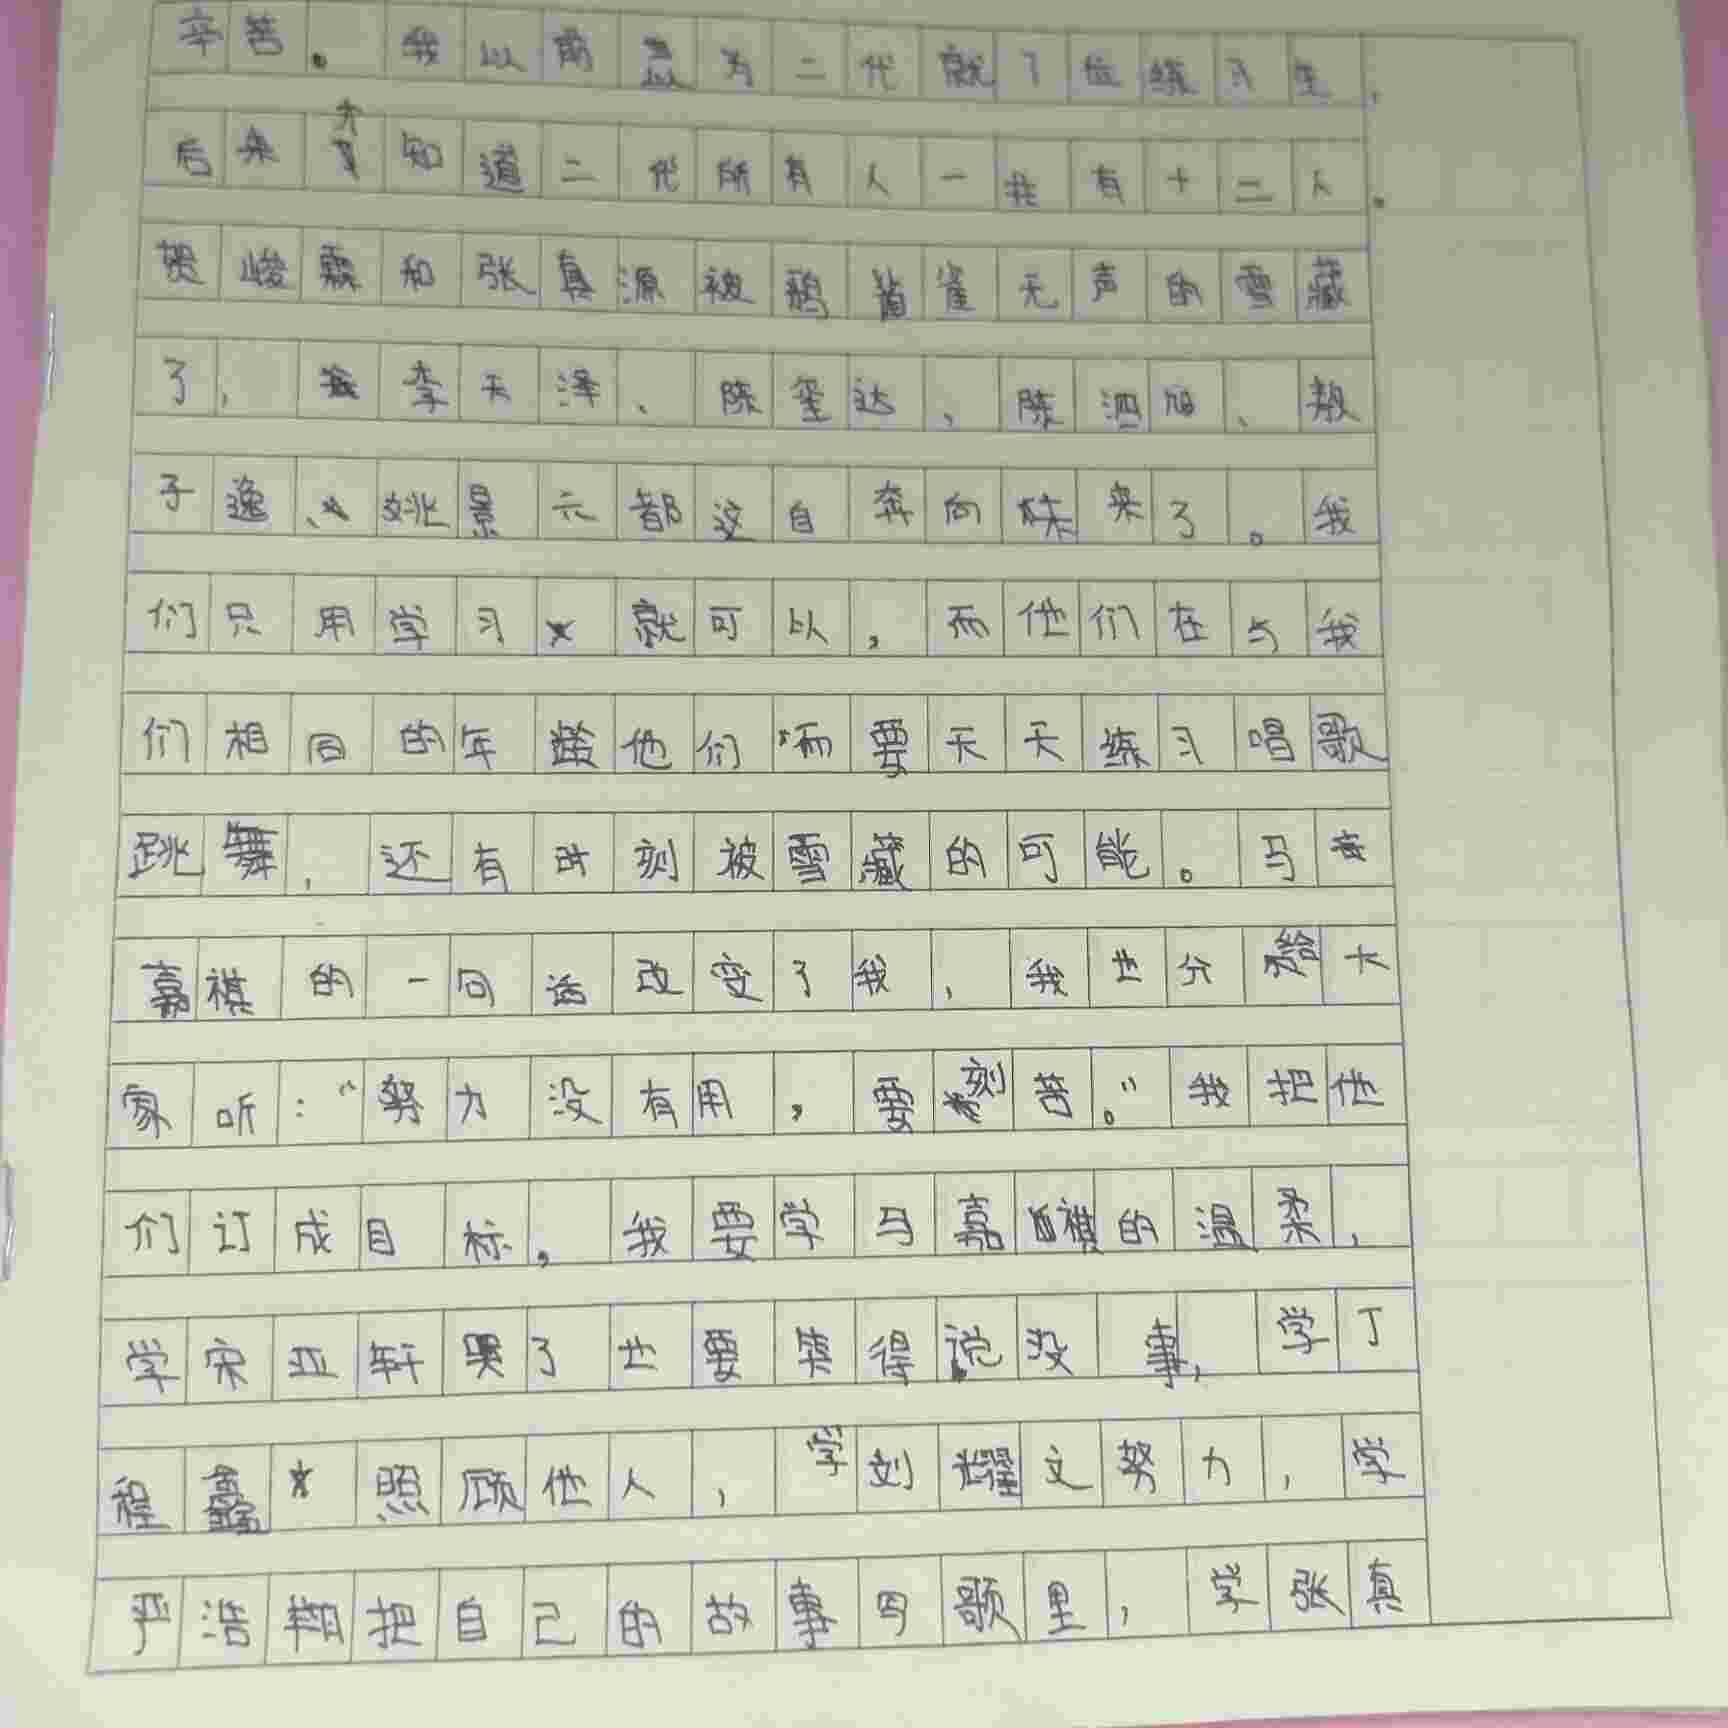 辛苦。我以前以为二代就7位练习生,
后来才知道二代所有人一共有十二人。
贺峻霖和张真源被鸦雀无声的雪藏
了,李天泽、陈玺达,陈泗旭、敖
子逸、姚景元都这自奔向未来了。我
们只用学习就可以,而他们在与我
们相同的年龄他们而要天天练习唱歌
跳舞,还有时刻被雪藏的可能。马
嘉祺的一句话改变了我,我也分给大
家听:“努力没有用,要刻苦。”我把他
们订成目标,我要学马嘉祺的温柔,
学宋亚轩哭了也要笑得说没事,学丁
程鑫照顾他人,学刘耀文努力,学
严浩翔把自己的故事写歌里,学张真